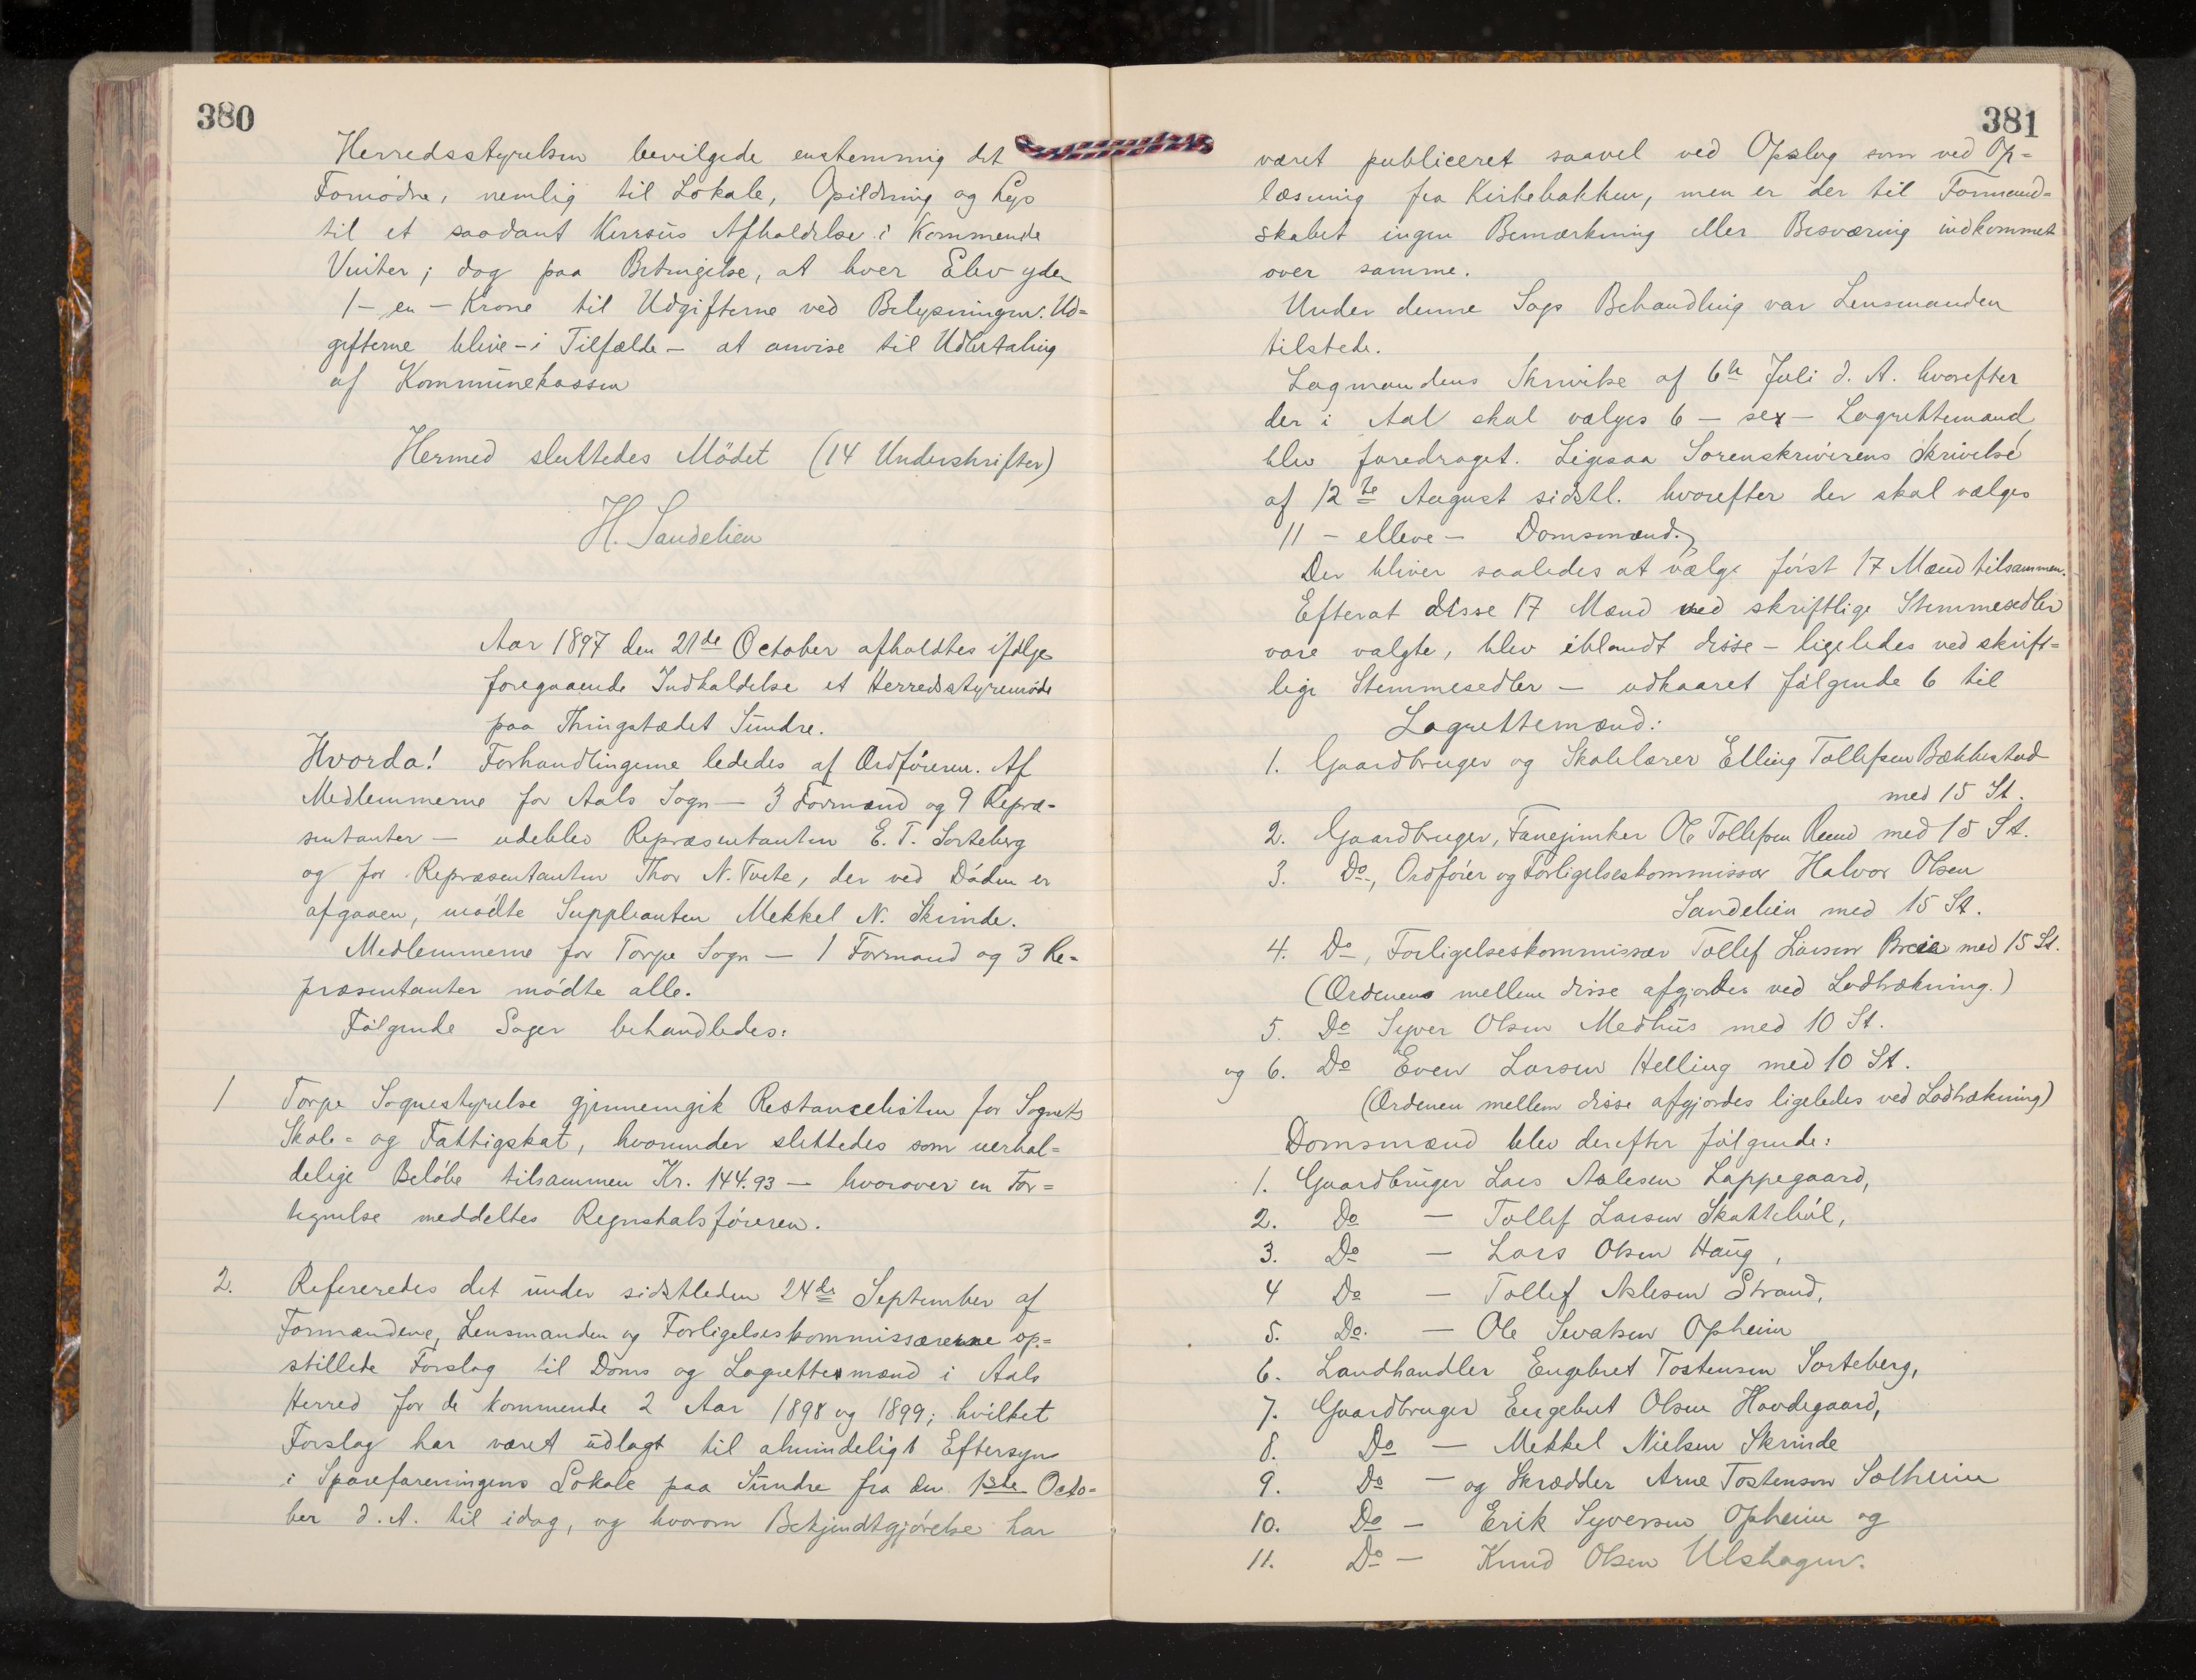 380
Herredsstyrelsen bevilgede enstemmig det
Fornödne, nemlig til Lokale, Opildning og Lys
til et saadant Kursus Afholdelse i Kommende
Vinter; dog paa Betingelse, at hver Elev yder
1 - en - Krone til Udgifterne ved Belysningen. Ud=
gifterne blive - i Tilfælde - at anvise til Udbetaling
af Kommunekassen
Hermed sluttedes Mödet (14 Underskrifter)
H. Sandelien
Aar 1897 den 21de October afholdtes ifölge
foregaaende Indkaldelse et Herredsstyremöde
paa Thingstædet Sundre.
Hvorda! Forhandlingerne lededes af Ordföreren. Af
Medlemmerne for Aals Sogn - 3 Formænd og 9 Repræ-
sentanter - udeblev Repræsentanten E. T. Sorteberg
og for Repræsentanten Thor N. Tvete, der ved Döden er
afgaaen, mödte Suppleanten Mekkel N. Skrinde.
Medlemmerne for Torpe Sogn - 1 Formand og 3 Re-
præsentanter mödte alle.
Fölgende Sager behandledes:
1 Torpe Sognestyrelse gjennemgik Restancelisten for Sognets
Skole- og Fattigskat, hvorunder slettedes som uerhol=
delige Belöbe tilsammen Kr. 144.93 - hvorover en For=
tegnelse meddeltes Regnskabsföreren.
2. Refereredes det under sidstleden 24de September af
Formændene, Lensmanden og Forligelseskommissærerne op=
stillede Forslag til Doms og Lagrettesmænd i Aals
Herred for de kommende 2 Aar 1898 og 1899; hvilket
Forslag har været udlagt til almindeligt Eftersyn
i Spareforeningens Lokale paa Sundre fra den 1ste Octo=
ber d. A. til idag, og hvorom Bekjendtgjörelse har
381
været publiceret saavel ved Opslag som ved Op=
læsning fra Kirkebakken, men er der til Formand=
skabet ingen Bemærkning eller Besværing indkommet
over samme.
Under denne Sags Behandling var Lensmanden
tilstede.
Lagmandens Skrivelse af 6te Juli d. A. hvorefter
der i Aal skal vælges 6 - sex - Lagrettemænd
blev foredraget. Ligesaa Sorenskriverens Skrivelse
af 12te August sidstl. hvorefter der skal vælges
11 - elleve - Domsmænd.
Der bliver saaledes at vælge först 17 Mænd tilsammen.
Efterat disse 17 Mænd ved skriftlige Stemmesedler
vare valgte, blev iblandt disse - ligeledes ved skrift=
lige Stemmesedler - udkaaret fölgende 6 til
Lagrettemænd:
1. Gaardbruger og Skolelærer Elling Tollefsen Bækkestad
med 15 St.
2. Gaardbruger, Fanejunker Ole Tollefsen Ruud med 15 St.
3. Do, Ordförer og Forligelseskommissær Halvor Olsen
Sandelien med 15 St.
4. Do, Forligelseskommissær Tollef Larsen Breie med 15 St.
(Ordenen mellem disse afgjordes ved Lodtrækning.)
5. Do Syver Olsen Medhus med 10 St.
og 6. Do Even Larsen Helling med 10 St.
(Ordenen mellem disse afgjordes ligeledes ved Lodtrækning)
Domsmænd blev derefter fölgende:
1. Gaardbruger Lars Aslesen Lappegaard,
2. Do - Tollef Larsen Skatteböl,
3. Do - Lars Olsen Haug,
4 Do - Tollef Aslesen Strand,
5. Do. - Ole Sevatsen Opheim
6. Landhandler Engebret Tostensen Sorteberg,
7. Gaardbruger Engebret Olsen Hovdegaard,
8. Do - Mekkel Nielsen Skrinde
9. Do - og Skrædder Arne Tostenson Solheim
10. Do - Erik Syversen Opheim og
11. Do - Knud Olsen Ulshagen.